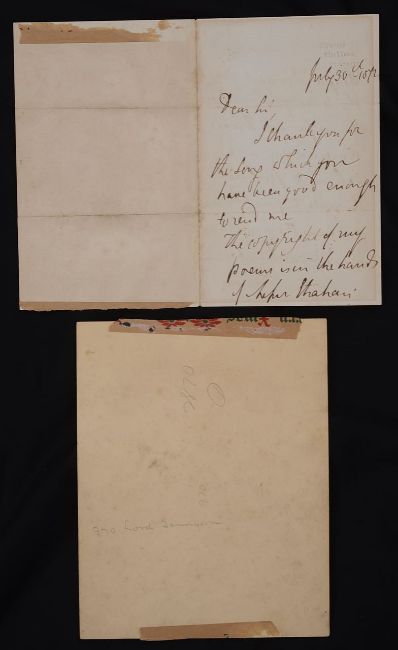 July 30th 1872
Dear Sir,
I thank you for
the song which you
have been good enough
to send me
The copyright of my
poems is in the hands
of Messrs Strahan
990 Lord Tennyson